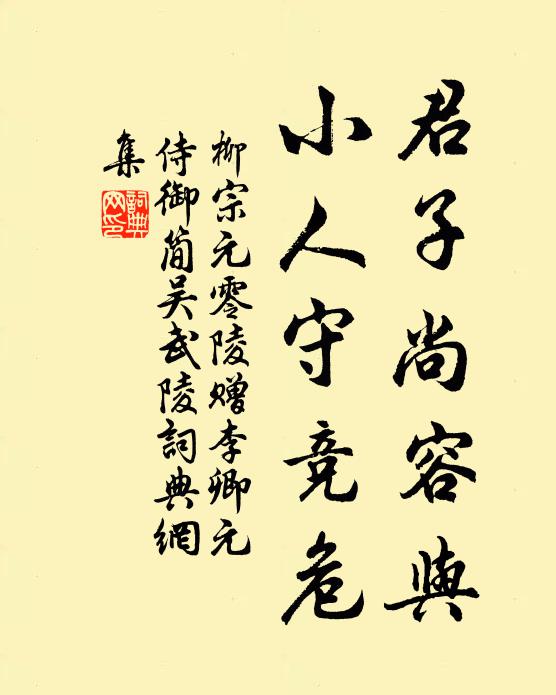 君子尚容與
小人守竞危
柳宗元零陵赠李卿元
侍御简吴武陵詞典網
集
詞典
网印